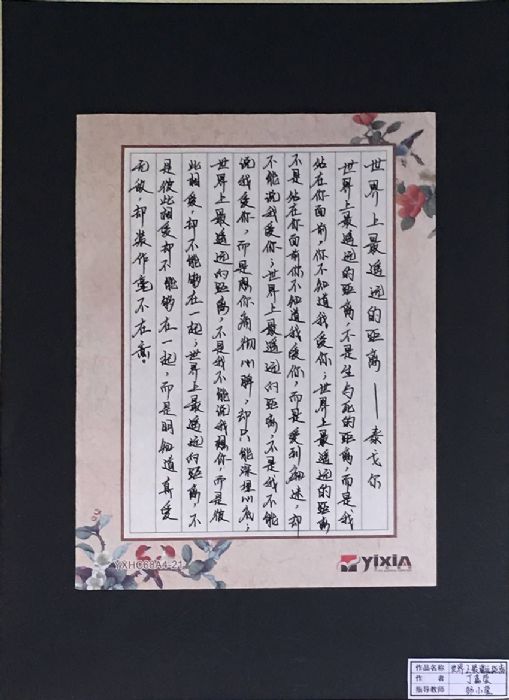 世界上最遥远的距离——泰戈尔
世界上最遥远的距离，不是生与死的距离，而是我
站在你面前，你不知道我爱你；世界上最遥远的距离
不是站在你面前你不知道我爱你，而是爱到痴迷，却
不能说我爱你；世界上最遥远的距离，不是我不能
说我爱你，而是想你痛彻心脾，却只能深埋心底；
世界上最遥远的距离，不是我不能说我想你，而是彼
此相爱，却不能够在一起；世界上最遥远的距离，不
是彼此相爱却不能够在一起，而是明知道真爱
无敌，却装作毫不在意。
YXHC88A4-21
yixin
作品名称 世界上最遥远的距离
作者 丁
指导教师 杨小